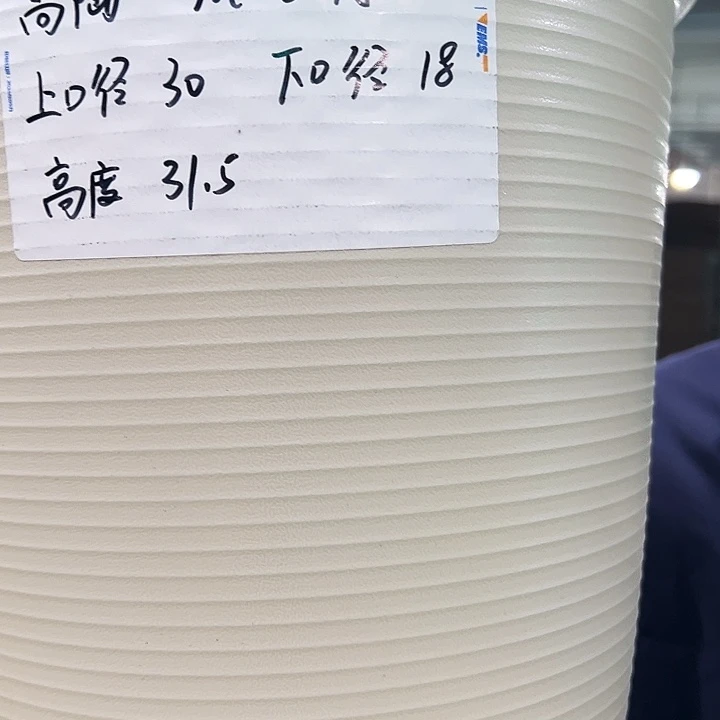 上口径 30 下口径 18
高度 31.5
EMS